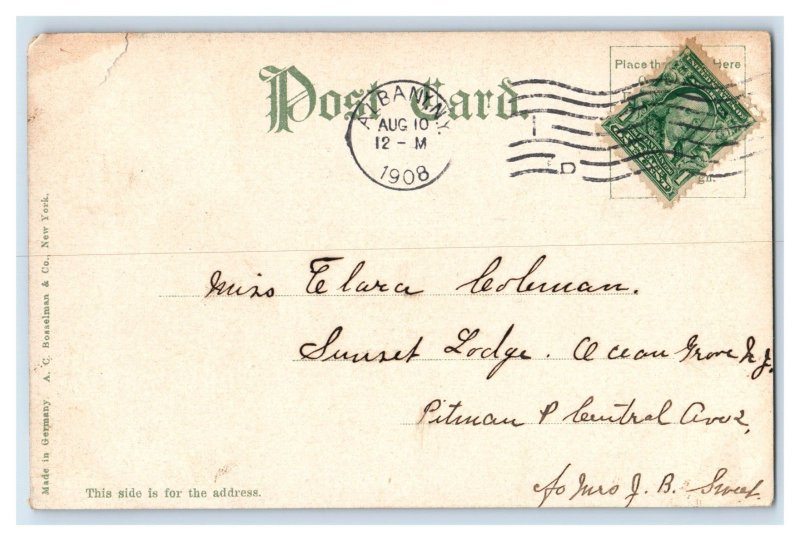 Post Card.
Place th Here
ALBANY, N.Y.
AUG 10
12 - M
1908
D
Miss Clara Coleman.
Sunset Lodge. Ocean Grove N.J.
Pitman & Central Aves,
c/o Mrs J. B. Sweet
This side is for the address.
Made in Germany. A. C. Bosselman & Co., New York.